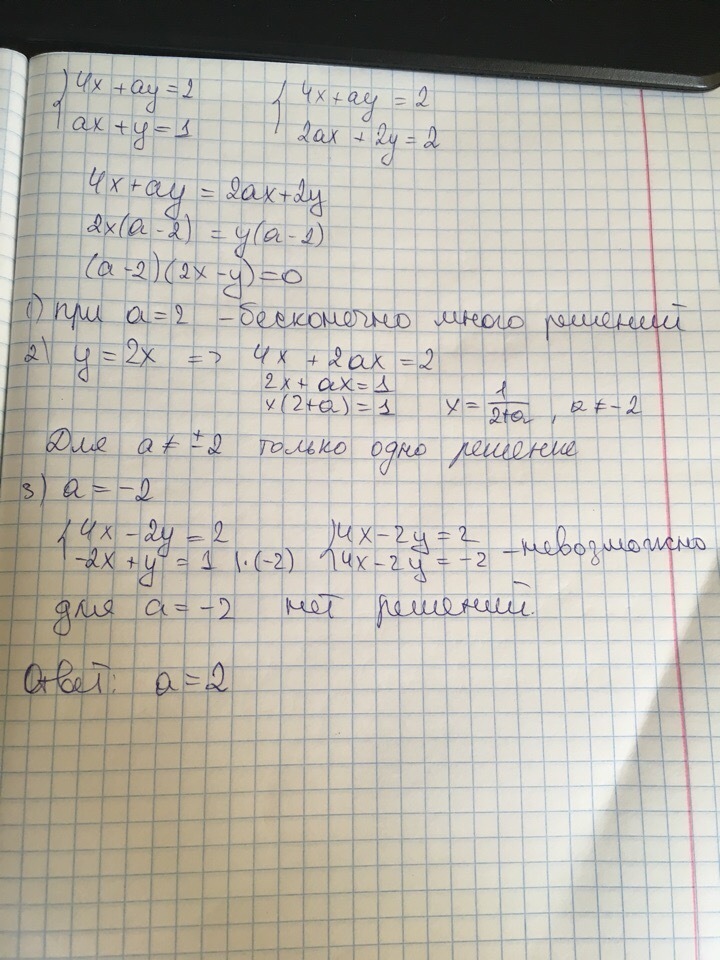 {4x + ay = 2 {4x + ay = 2
ax + y = 1 2ax + 2y = 2
4x + ay = 2ax + 2y
2x(a - 2) = y(a - 2)
(a - 2)(2x - y) = 0
1) при a = 2 - бесконечно много решений
2) y = 2x => 4x + 2ax = 2
2x + ax = 1
x(2 + a) = 1 x = 1/(2+a), a ≠ -2
Для a ≠ ±2 только одно решение
3) a = -2
{4x - 2y = 2 {4x - 2y = 2 - невозможно
-2x + y = 1 |·(-2) 4x - 2y = -2
для a = -2 нет решений.
Ответ: a = 2